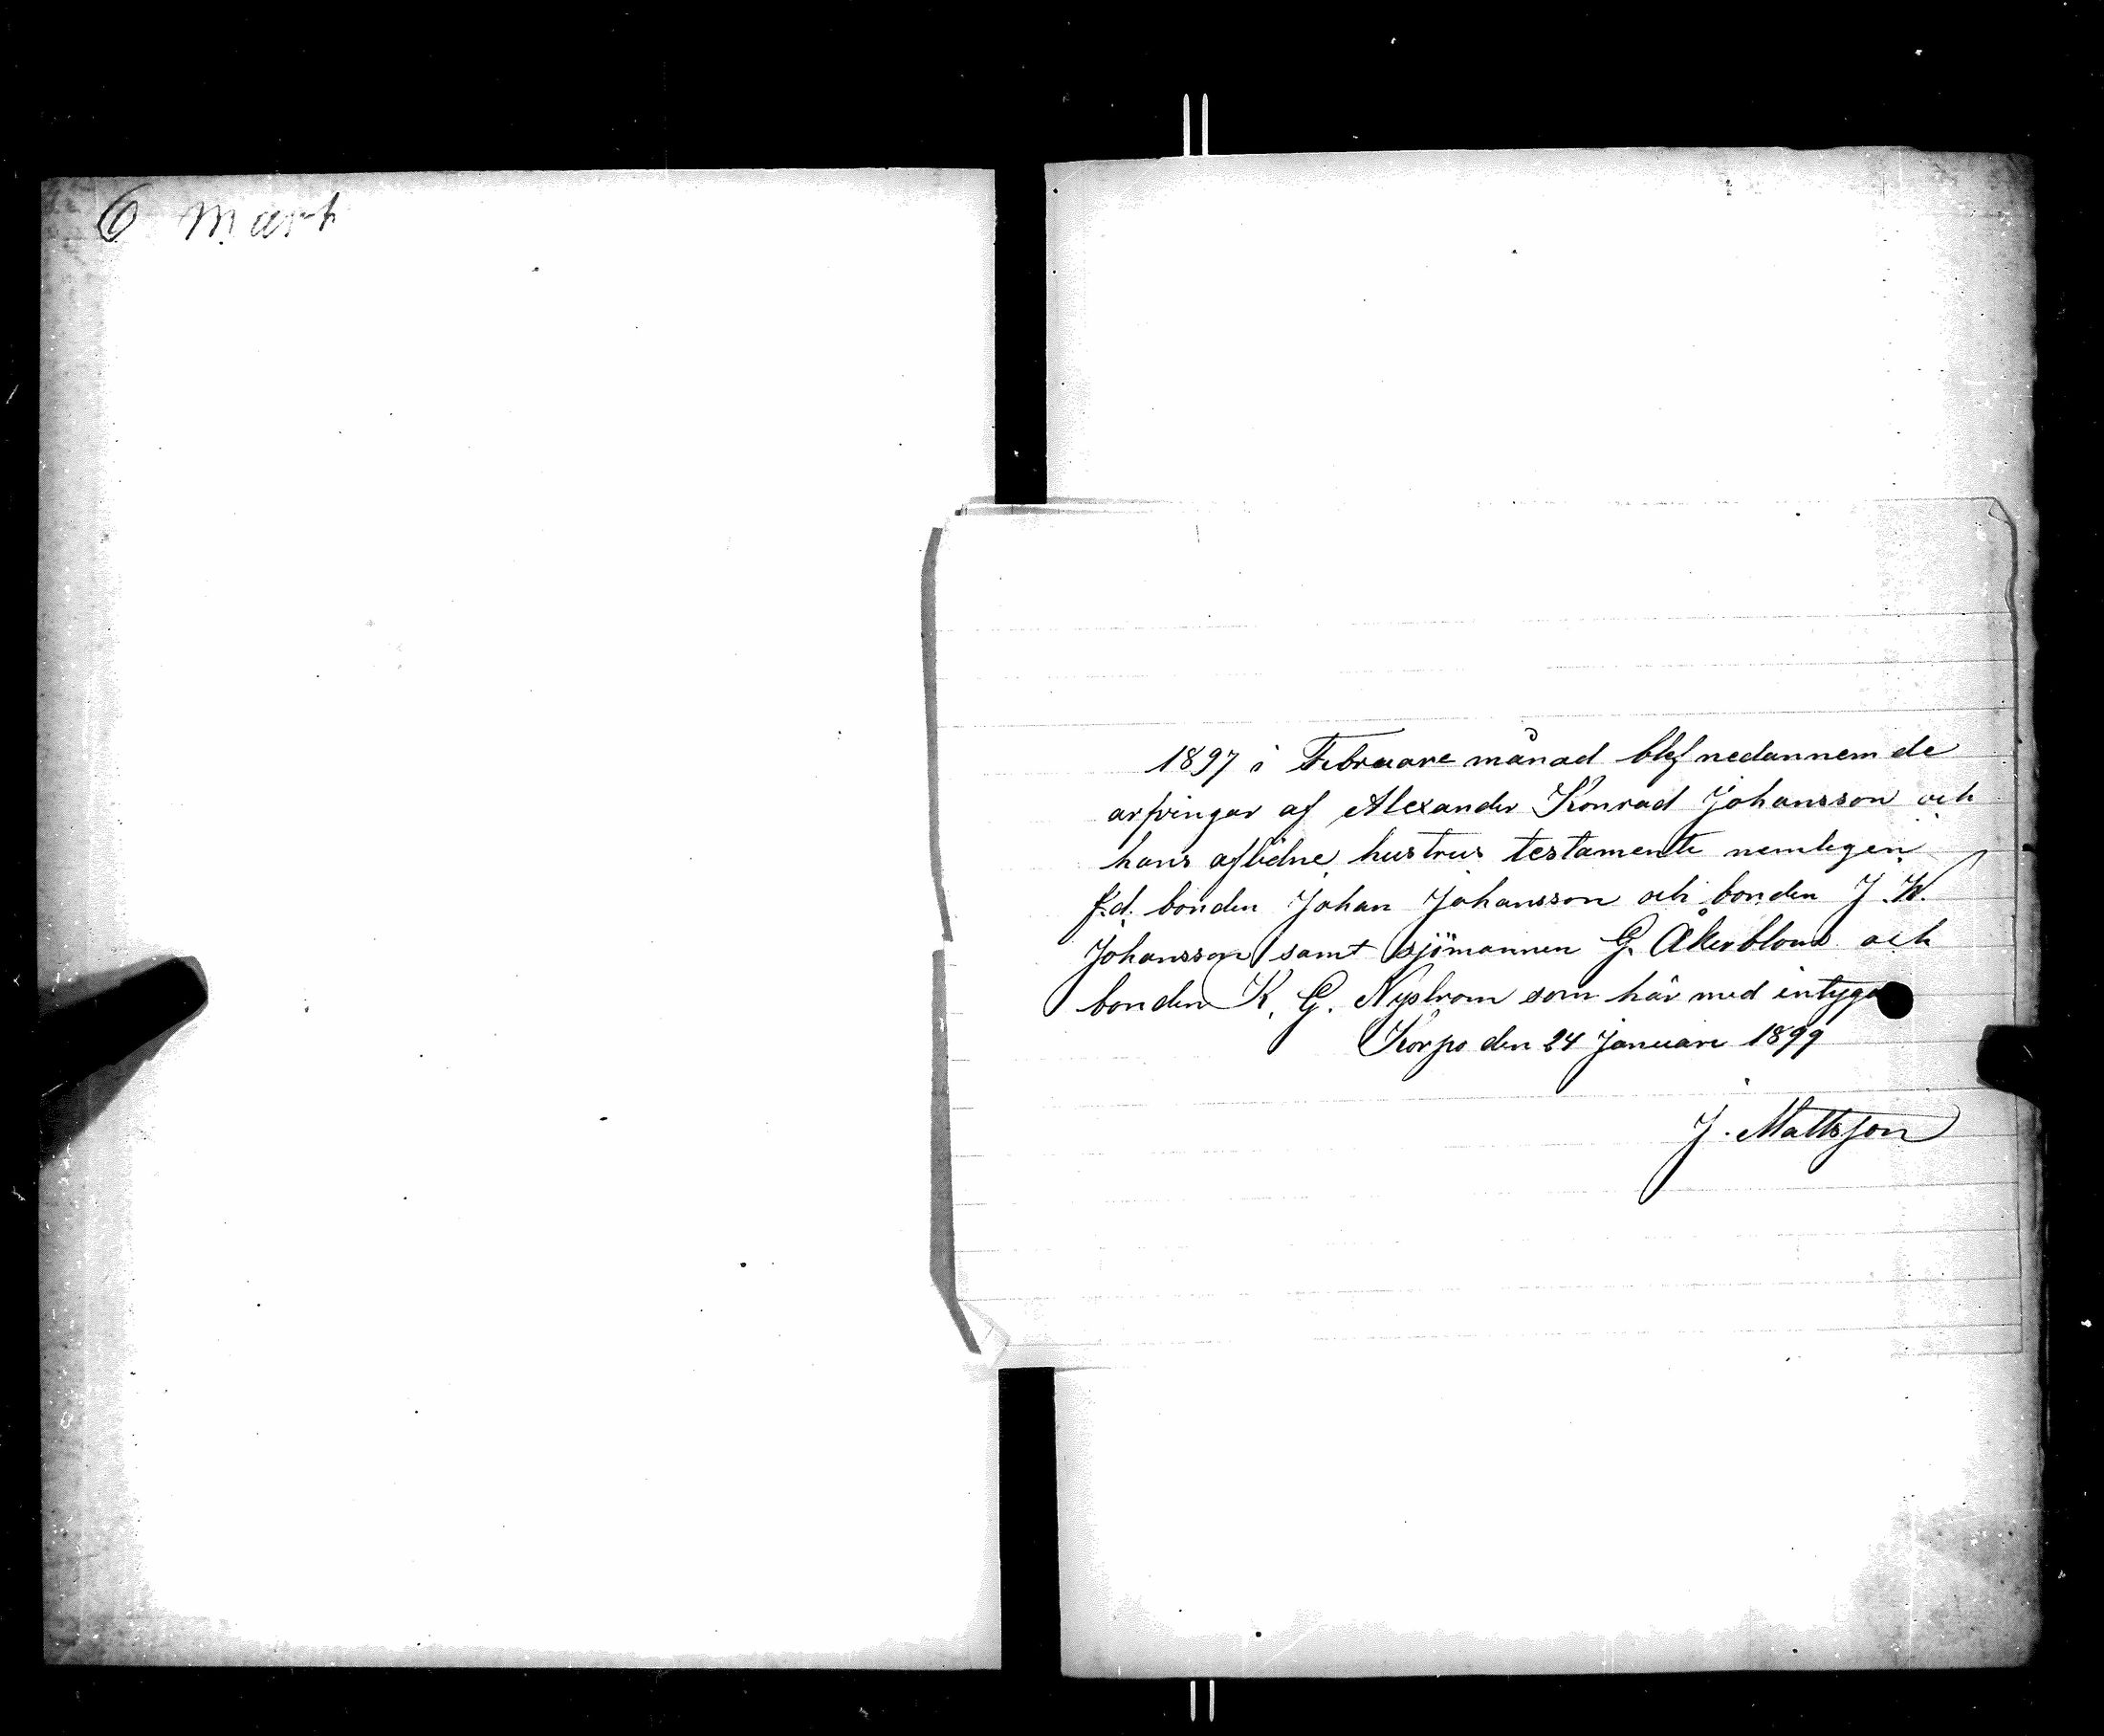 6 Mart
1897 i Februare månad blef nedannemde
arfvingar af Alexander Konrad Johansson och
hans aflidne hustrus testamente nemligen
f.d. bonden Johan Johansson och bonden J. W.
Johansson samt sjömannen G. Åkerblom och
bonden K. G. Nyström som här med intygas
Korpo den 24 Januari 1899
J. Mattsson